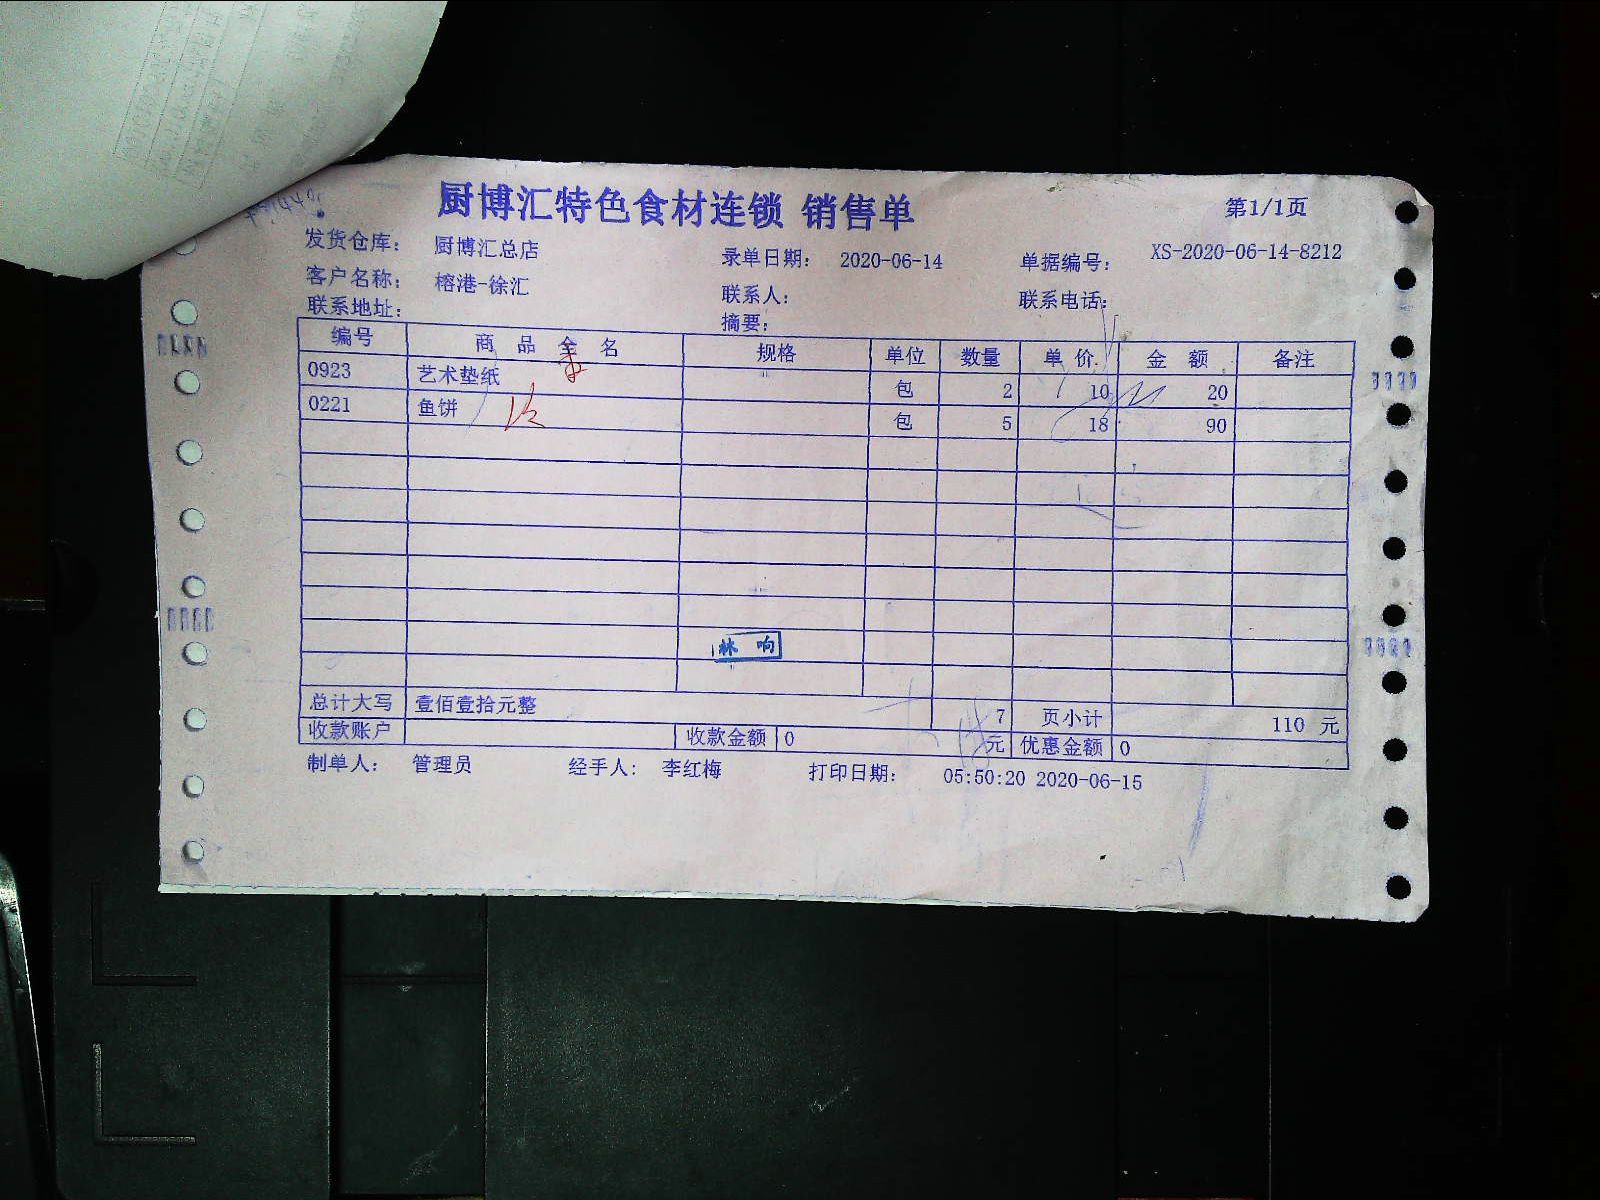 厨博汇特色食材连锁 销售单
第1/1页
发货仓库： 厨博汇总店 录单日期： 2020-06-14 单据编号： XS-2020-06-14-8212
客户名称： 榕港-徐汇 联系人： 联系电话：
联系地址： 摘要：
编号 商品全名 规格 单位 数量 单价 金额 备注
0923 艺术垫纸 包 2 10 20
0221 鱼饼 包 5 18 90
林响
总计大写 壹佰壹拾元整 7 页小计 110 元
收款账户 收款金额 0 元 优惠金额 0
制单人： 管理员 经手人： 李红梅 打印日期： 05:50:20 2020-06-15